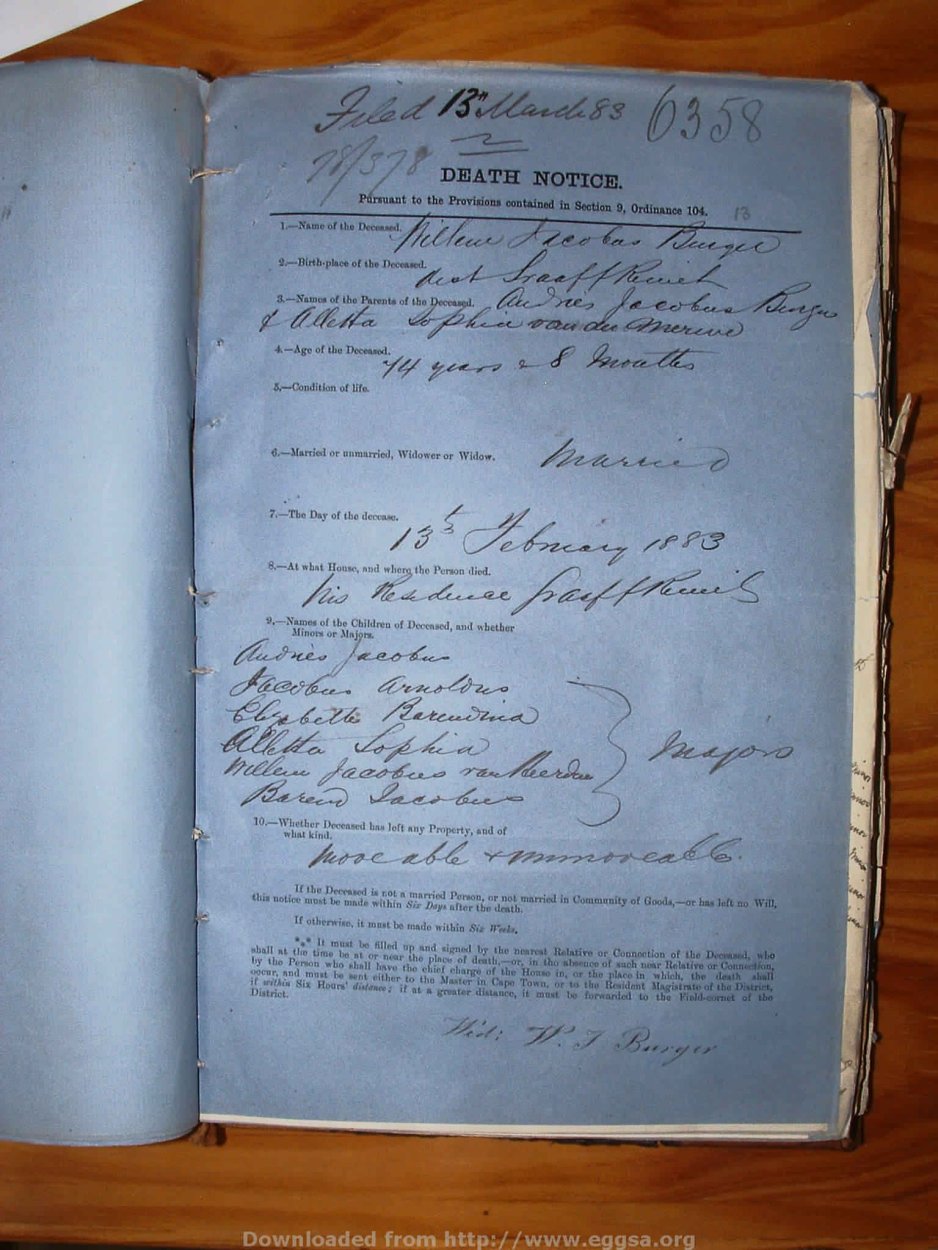 Filed 13th March 83 6358
78/378
DEATH NOTICE.
Pursuant to the Provisions contained in Section 9, Ordinance 104. 13
1.—Name of the Deceased. Willem Jacobus Burger
2.—Birth-place of the Deceased. dist Graaff Reinet
3.—Names of the Parents of the Deceased. Andries Jacobus Burger
& Alletta Sophia van der Merwe
4.—Age of the Deceased. 74 years & 8 Months
5.—Condition of life.
6.—Married or unmarried, Widower or Widow. Married
7.—The Day of the decease. 13th February 1883
8.—At what House, and where the Person died.
his Residence Graaff Reinet
9.—Names of the Children of Deceased, and whether
Minors or Majors.
Andries Jacobus
Jacobus Arnoldus
Elizabetta Barendina
Alletta Sophia
Willem Jacobus van Heerden
Barend Jacobus
Majors
10.—Whether Deceased has left any Property, and of
what kind.
moveable & immoveable.
If the Deceased is not a married Person, or not married in Community of Goods,—or has left no Will,
this notice must be made within Six Days after the death.
If otherwise, it must be made within Six Weeks.
*** It must be filled up and signed by the nearest Relative or Connection of the Deceased, who
shall at the time be at or near the place of death,—or, in the absence of such near Relative or Connection,
by the Person who shall have the chief charge of the House in, or the place in which, the death shall
occur, and must be sent either to the Master in Cape Town, or to the Resident Magistrate of the District,
if within Six Hours' distance; if at a greater distance, it must be forwarded to the Field-cornet of the
District.
Wid: W. J Burger
Downloaded from http://www.eggsa.org